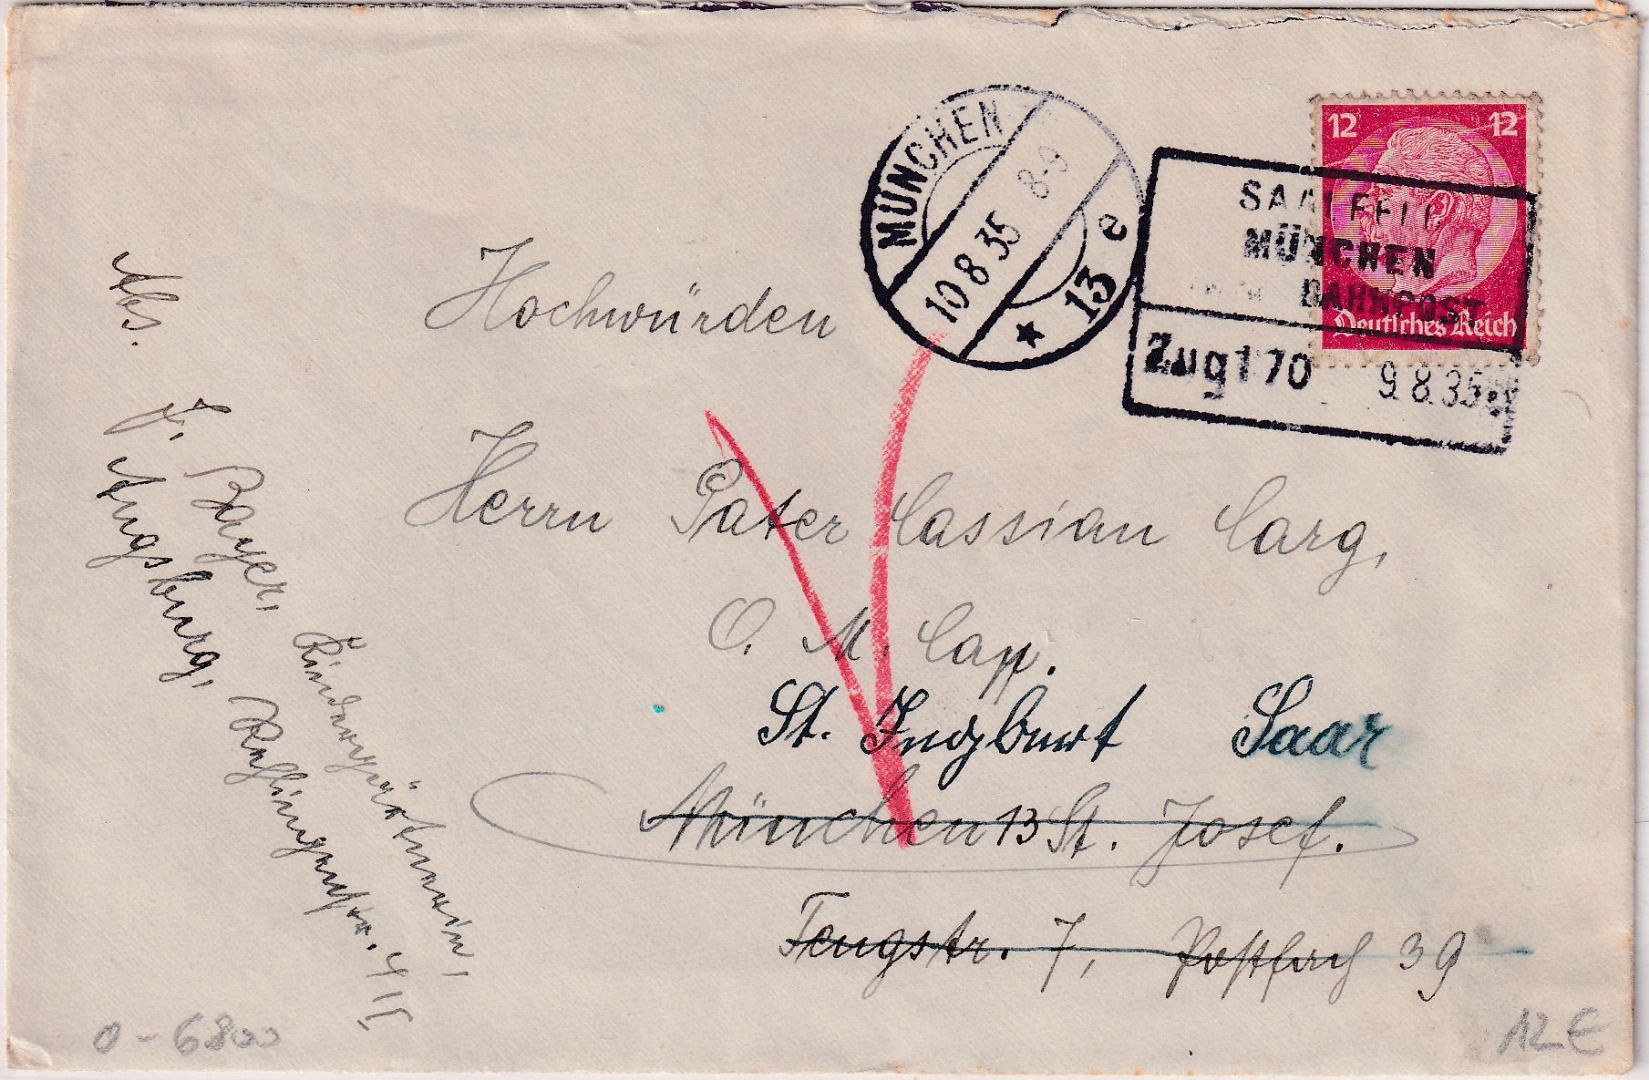 12 12
Deutsches Reich
MÜNCHEN
10 8 35 8-9
* 13 e
SAALFELD
MÜNCHEN
BAHNPOST
Zug 170 9.8.35
Hochwürden
Herrn Pater Cassian Carg,
O. M. Cap.
St. Ingbert Saar
München 13 St. Josef.
Tengstr. 7, Postfach 39
Abs. F. Bayer, Kindergärtnerin,
Augsburg, Rehlingenstr. 4 II
0-6800
12 €